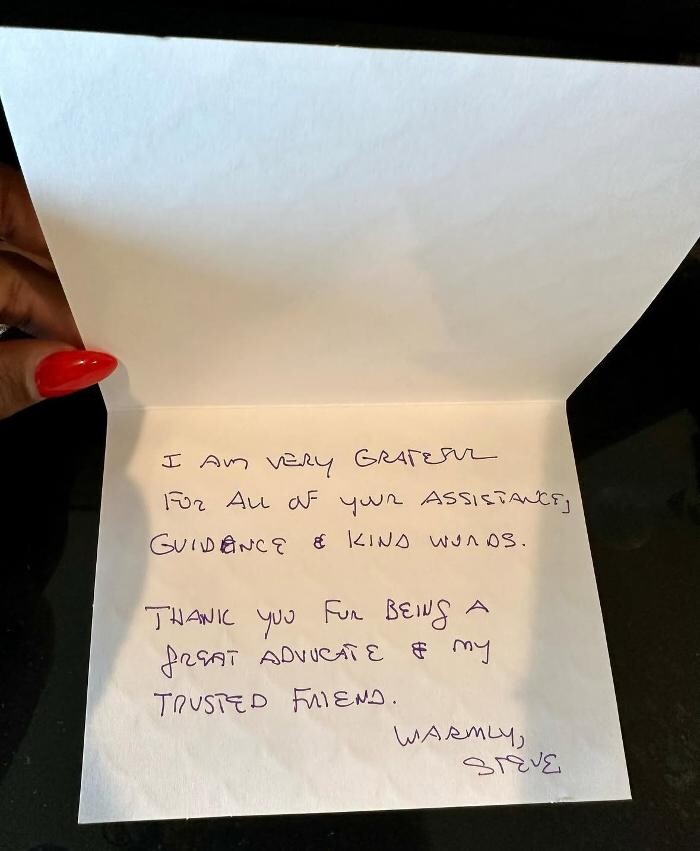 I AM VERY GRATEFUL
FOR ALL OF YOUR ASSISTANCE,
GUIDANCE & KIND WORDS.
THANK YOU FOR BEING A
GREAT ADVOCATE & MY
TRUSTED FRIEND.
WARMLY,
STEVE